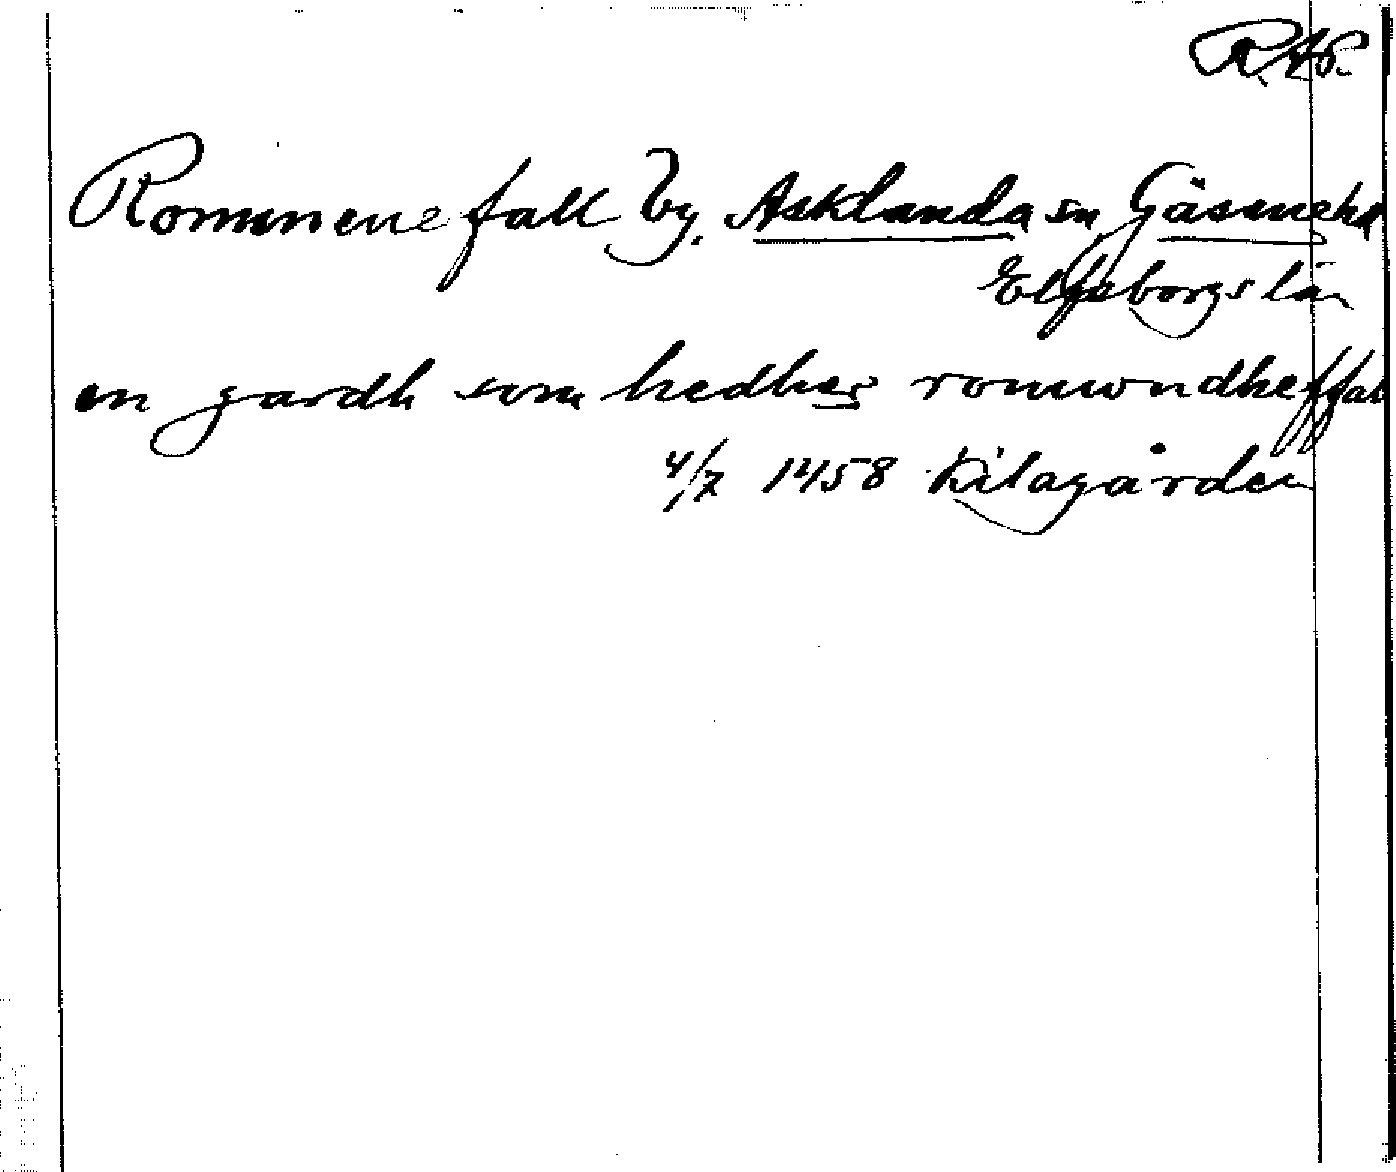 R.A.P.
Rommenefall by. Asklanda sn Gäsenehd
Elfsborgs län
en gardh som hedher romwndheffal
4/7 1458 Kilagården